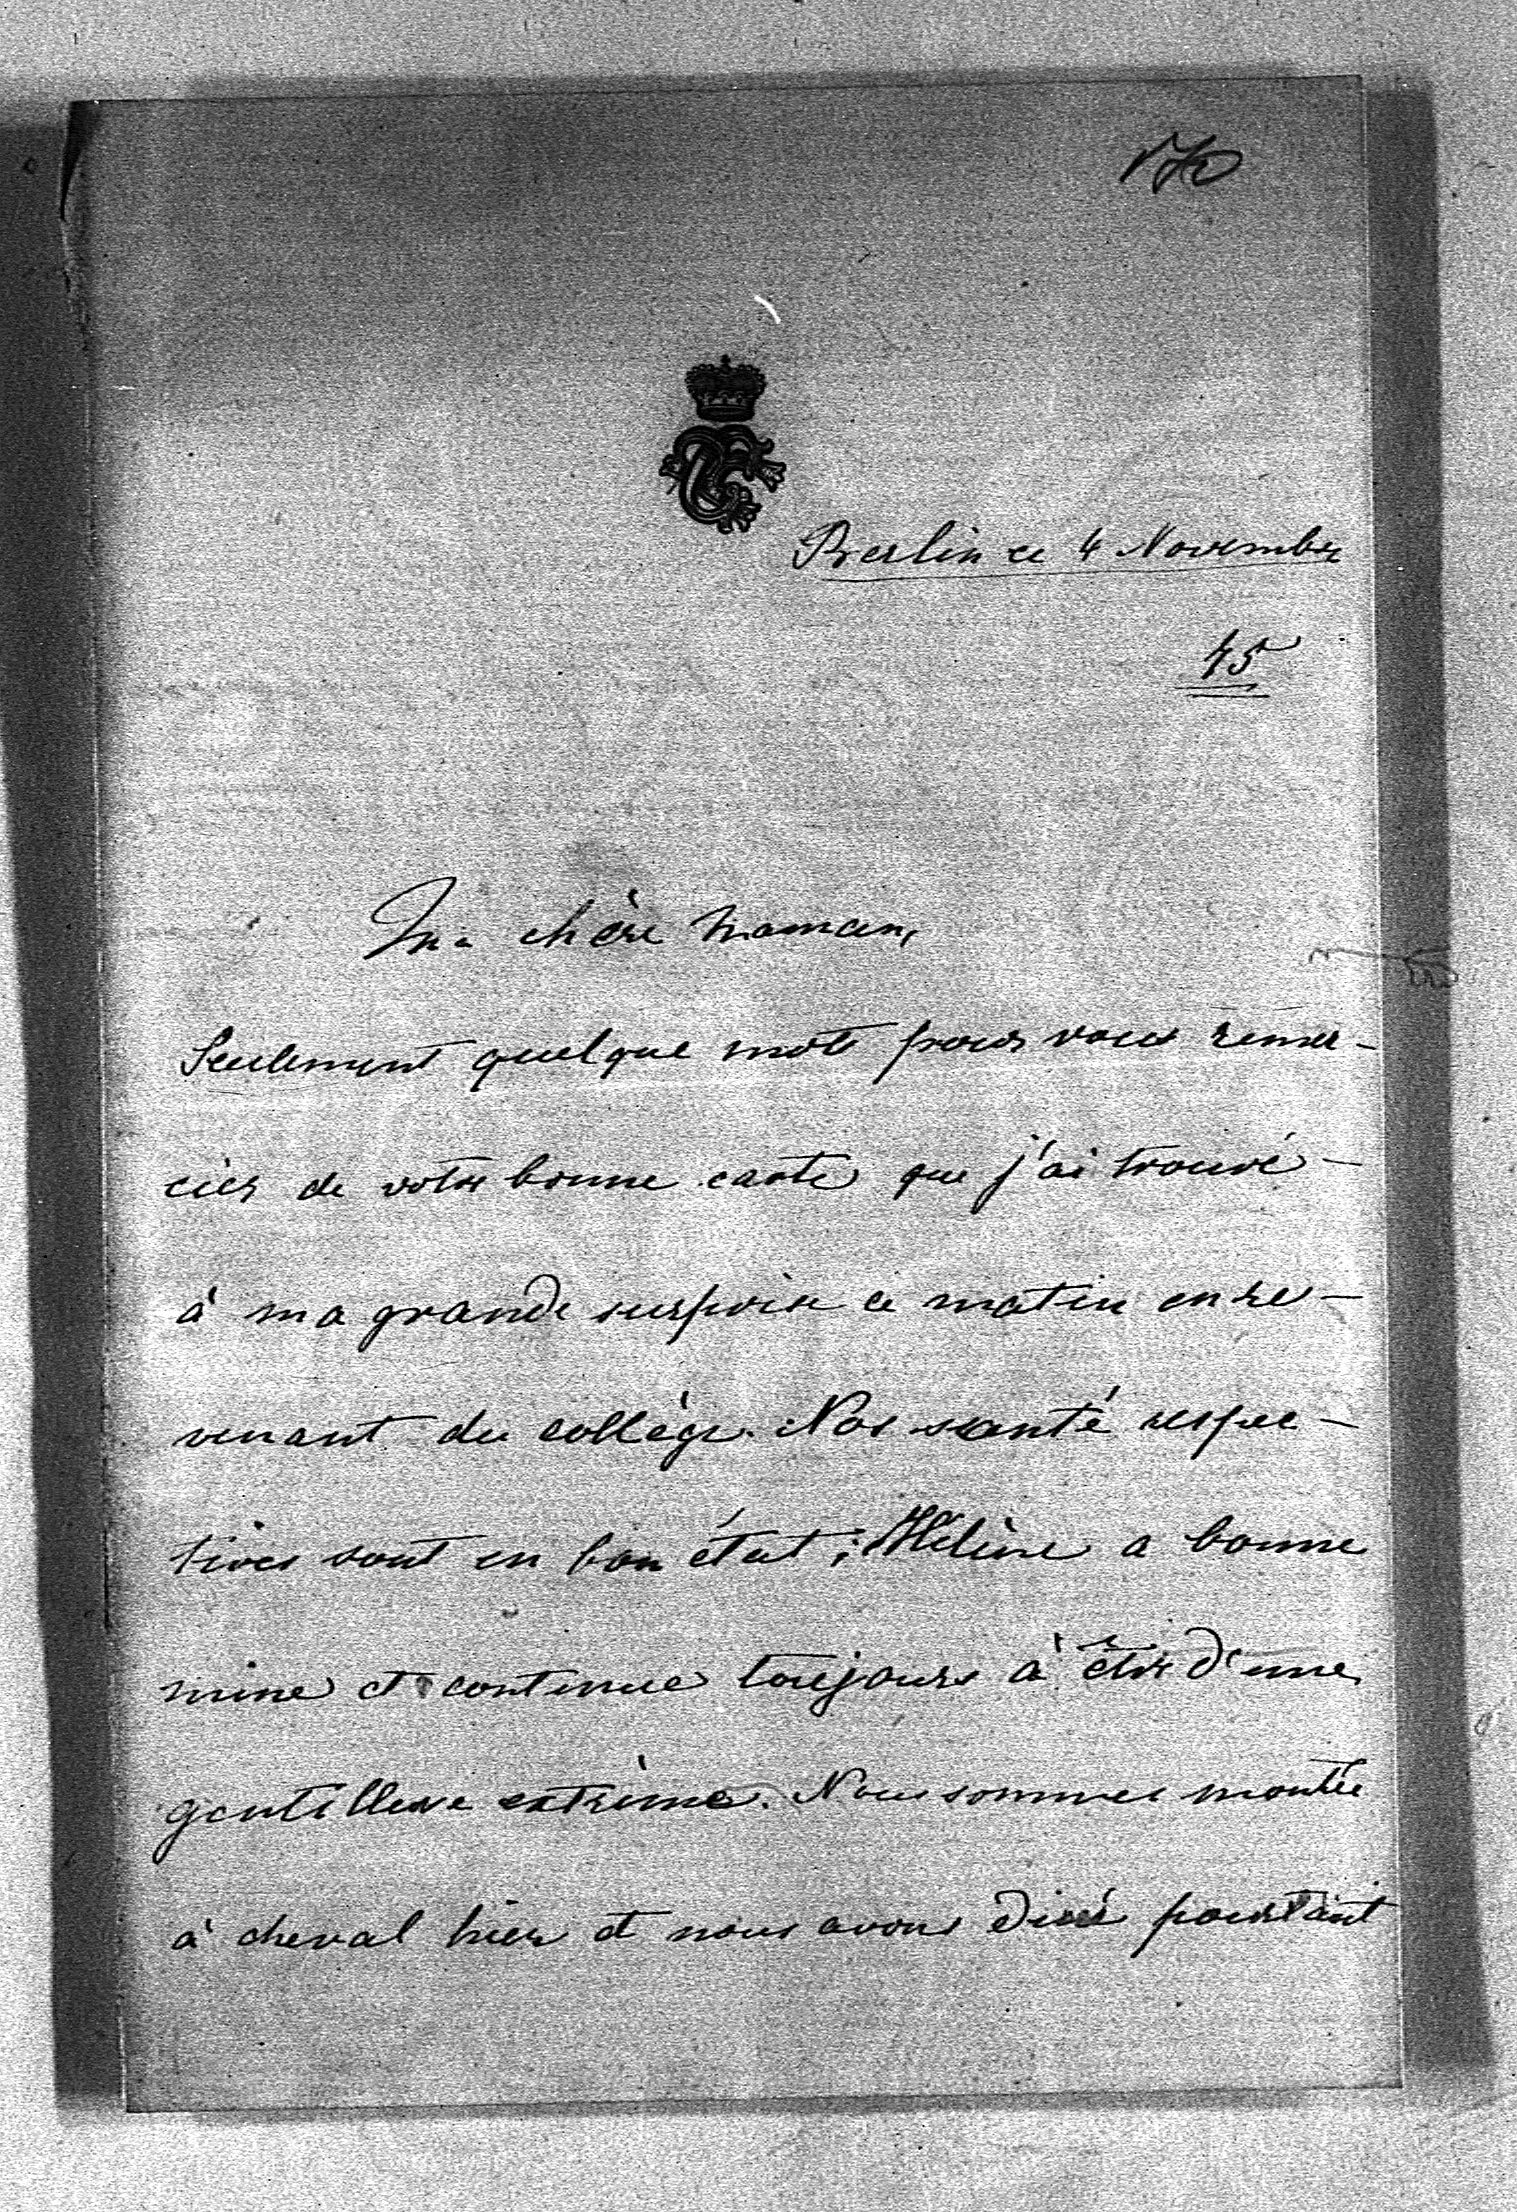 170
Berlin ce 4 Novembre
45
Ma chère maman,
Seulement quelque mots pour vous remer-
cier de votre bonne carte que j'ai trouvé-
à ma grande surprise ce matin en re-
venant du collège. Nos santé respec-
tives sont en bon état; Hélène a bonne
mine et continue toujours à être d'une
gentillesse extrème. Nous sommes montée
à cheval hier et nous avons diné pourtant